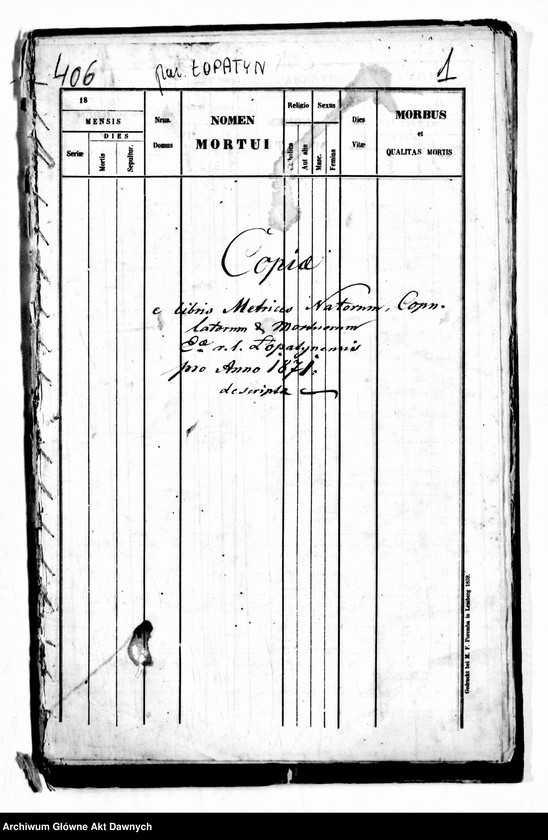 406
par. ŁOPATYN
1
18
MENSIS
DIES
Seriæ
Mortis
Sepultur.
Nrus.
Domus
NOMEN
MORTUI
Religio
Catholica
Aut alia
Sexus
Masc.
Femina
Dies
Vitæ
MORBUS
et
QUALITAS MORTIS
Copiæ
e libris Metrices Natorum, Copu-
latorum & Mortuorum
Eæ r. l. Łopatynensis
pro Anno 1871.
descripta
Gedruckt bei M. F. Poremba in Lemberg 1859.
Archiwum Główne Akt Dawnych